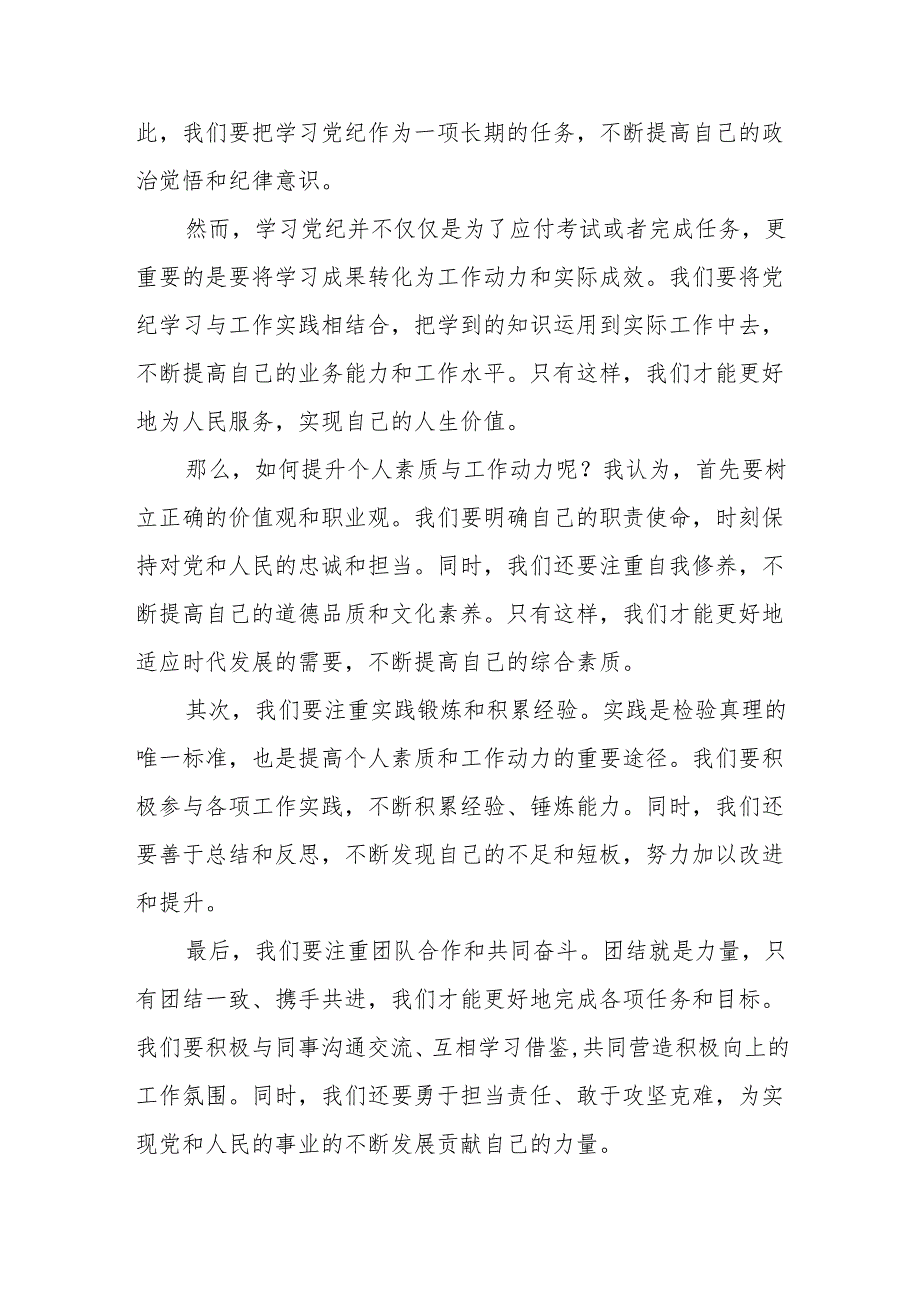 此，我们要把学习党纪作为一项长期的任务，不断提高自己的政
治觉悟和纪律意识。
然而，学习党纪并不仅仅是为了应付考试或者完成任务，更
重要的是要将学习成果转化为工作动力和实际成效。我们要将党
纪学习与工作实践相结合，把学到的知识运用到实际工作中去，
不断提高自己的业务能力和工作水平。只有这样，我们才能更好
地为人民服务，实现自己的人生价值。
那么，如何提升个人素质与工作动力呢？我认为，首先要树
立正确的价值观和职业观。我们要明确自己的职责使命，时刻保
持对党和人民的忠诚和担当。同时，我们还要注重自我修养，不
断提高自己的道德品质和文化素养。只有这样，我们才能更好地
适应时代发展的需要，不断提高自己的综合素质。
其次，我们要注重实践锻炼和积累经验。实践是检验真理的
唯一标准，也是提高个人素质和工作动力的重要途径。我们要积
极参与各项工作实践，不断积累经验、锤炼能力。同时，我们还
要善于总结和反思，不断发现自己的不足和短板，努力加以改进
和提升。
最后，我们要注重团队合作和共同奋斗。团结就是力量，只
有团结一致、携手共进，我们才能更好地完成各项任务和目标。
我们要积极与同事沟通交流、互相学习借鉴,共同营造积极向上的
工作氛围。同时，我们还要勇于担当责任、敢于攻坚克难，为实
现党和人民的事业的不断发展贡献自己的力量。